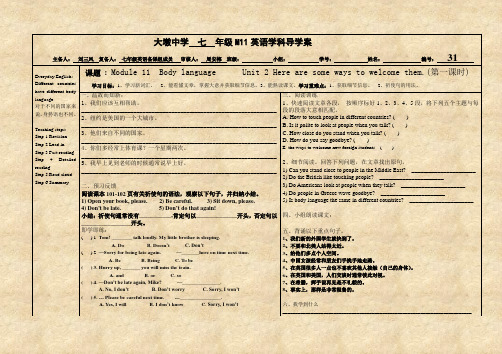 大墩中学 七 年级M11英语学科导学案
主备人: 刘三凤 复备人: 七年级英语备课组成员 审核人: 班级: 小组: 学号: 姓名: 编号: 31
Everyday English:
Different countries
have different body
language
对于不同的国家来
说,身势语也不同。
Teaching steps:
Step 1 Revision
Step 2 Lead in
Step 3 Fast reading
Step 4 Detailed
reading
Step 5 Read aloud
Step 6 Summary
课题:Module 11 Body language Unit 2 Here are some ways to welcome them.(第一课时)
学习目标:1、学习新词汇。 2、能看懂文章,掌握大意并获取细节信息。3、能熟读课文。学习重难点:1、获取细节信息。 2、祈使句的用法。
一、温故而知新:
1、我们应该互相帮助。
2、纽约是美国的一个大城市。
3、他们来自不同的国家。
4、你们多经常上体育课?一个星期两次。
5、我早上见到老师的时候通常说早上好。
二、预习反馈
阅读课本101-102页有关祈使句的语法,观察以下句子,并归纳小结。
1) Open your book, please. 2) Be careful. 3) Sit down, please.
4) Don't be late. 5) Don't do that again!
小结:祈使句通常没有 .肯定句以 开头,否定句以
开头。
即学即练:
( ) 1. Tom! talk loudly. My little brother is sleeping.
A. Do B. Doesn't C. Don't
( ) 2. —Sorry for being late again. — here on time next time.
A. Be B. Being C. To be
( ) 3. Hurry up, you will miss the train.
A. and B. or C. so
( ) 4. —Don't be late again, Mike? —
A. No, I don't B. Don't worry C. Sorry, I won't
( ) 5. — Please be careful next time. —
A. Yes, I will B. I don't know C. Sorry, I won't
三、阅读训练
1、快速阅读文章各段,按顺序标好1、2、3、4、5段,将下列五个主题与每
段的段落大意相匹配。
A. How to touch people in different countries? ( )
B. Is it polite to look at people when you talk? ( )
C. How close do you stand when you talk? ( )
D. How do you say goodbye? ( )
E. the ways to welcome new foreign students ( )
2、细节阅读。回答下列问题,在文章找出原句。
1) Can you stand close to people in the Middle East?
2) Do the British like touching people?
3) Do Americans look at people when they talk?
4) Do people in Greece wave goodbye?
5) Is body language the same in different countries?
四、小组朗读课文:
五、背诵以下重点句子。
1、我们新的外国学生就快到了。
2、不要和北美人站得太近。
3、给他们多点个人空间。
4、中国女孩经常和朋友们手挽手地走路。
5、在英国很多人一点也不喜欢其他人接触(自己的身体)。
6、在英国和美国,人们交谈时通常彼此对视。
7、在希腊,挥手说再见是不礼貌的。
8、事实上,那样是非常粗鲁的。
六、教学到什么